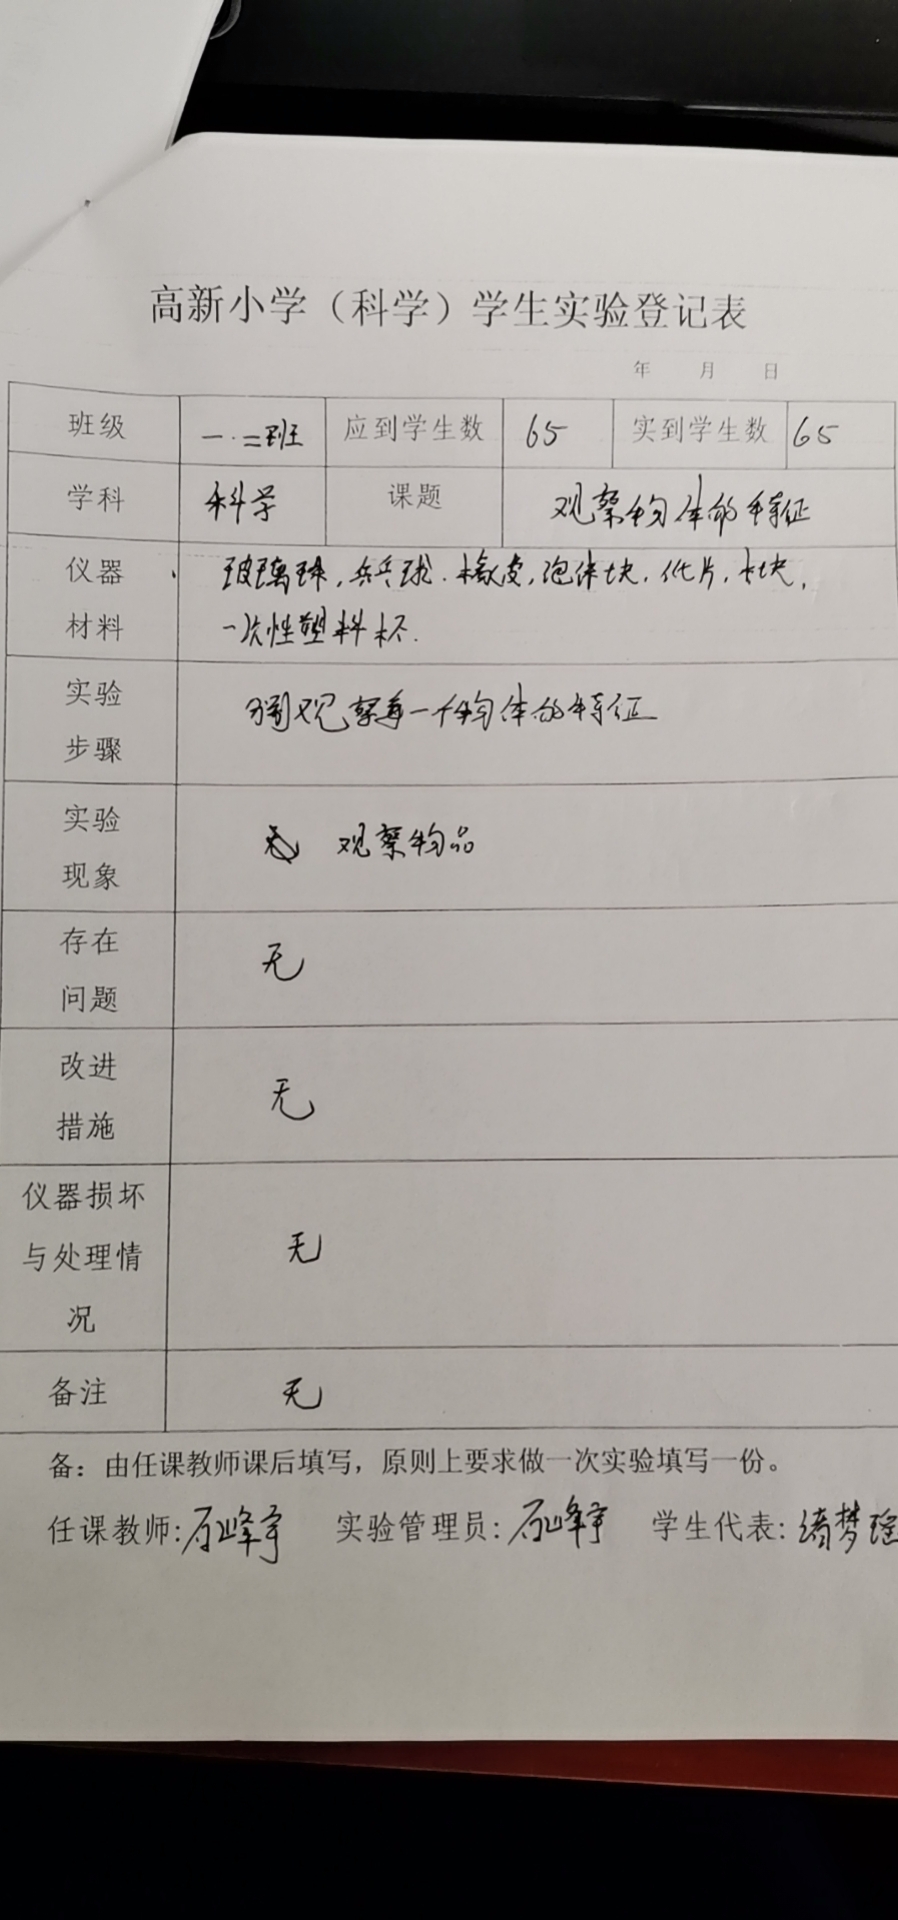 高新小学（科学）学生实验登记表
年 月 日
班级 一.二班 应到学生数 65 实到学生数 65
学科 科学 课题 观察物体的特征
仪器 玻璃球,乒乓球.橡皮,泡沫块, 片,木块,
材料 一次性塑料杯.
实验 观察每一个物体的特征
步骤
实验
现象 无 观察物品
存在
问题 无
改进
措施 无
仪器损坏
与处理情 无
况
备注 无
备：由任课教师课后填写，原则上要求做一次实验填写一份。
任课教师:石峰宇 实验管理员:石峰宇 学生代表: 梦瑶